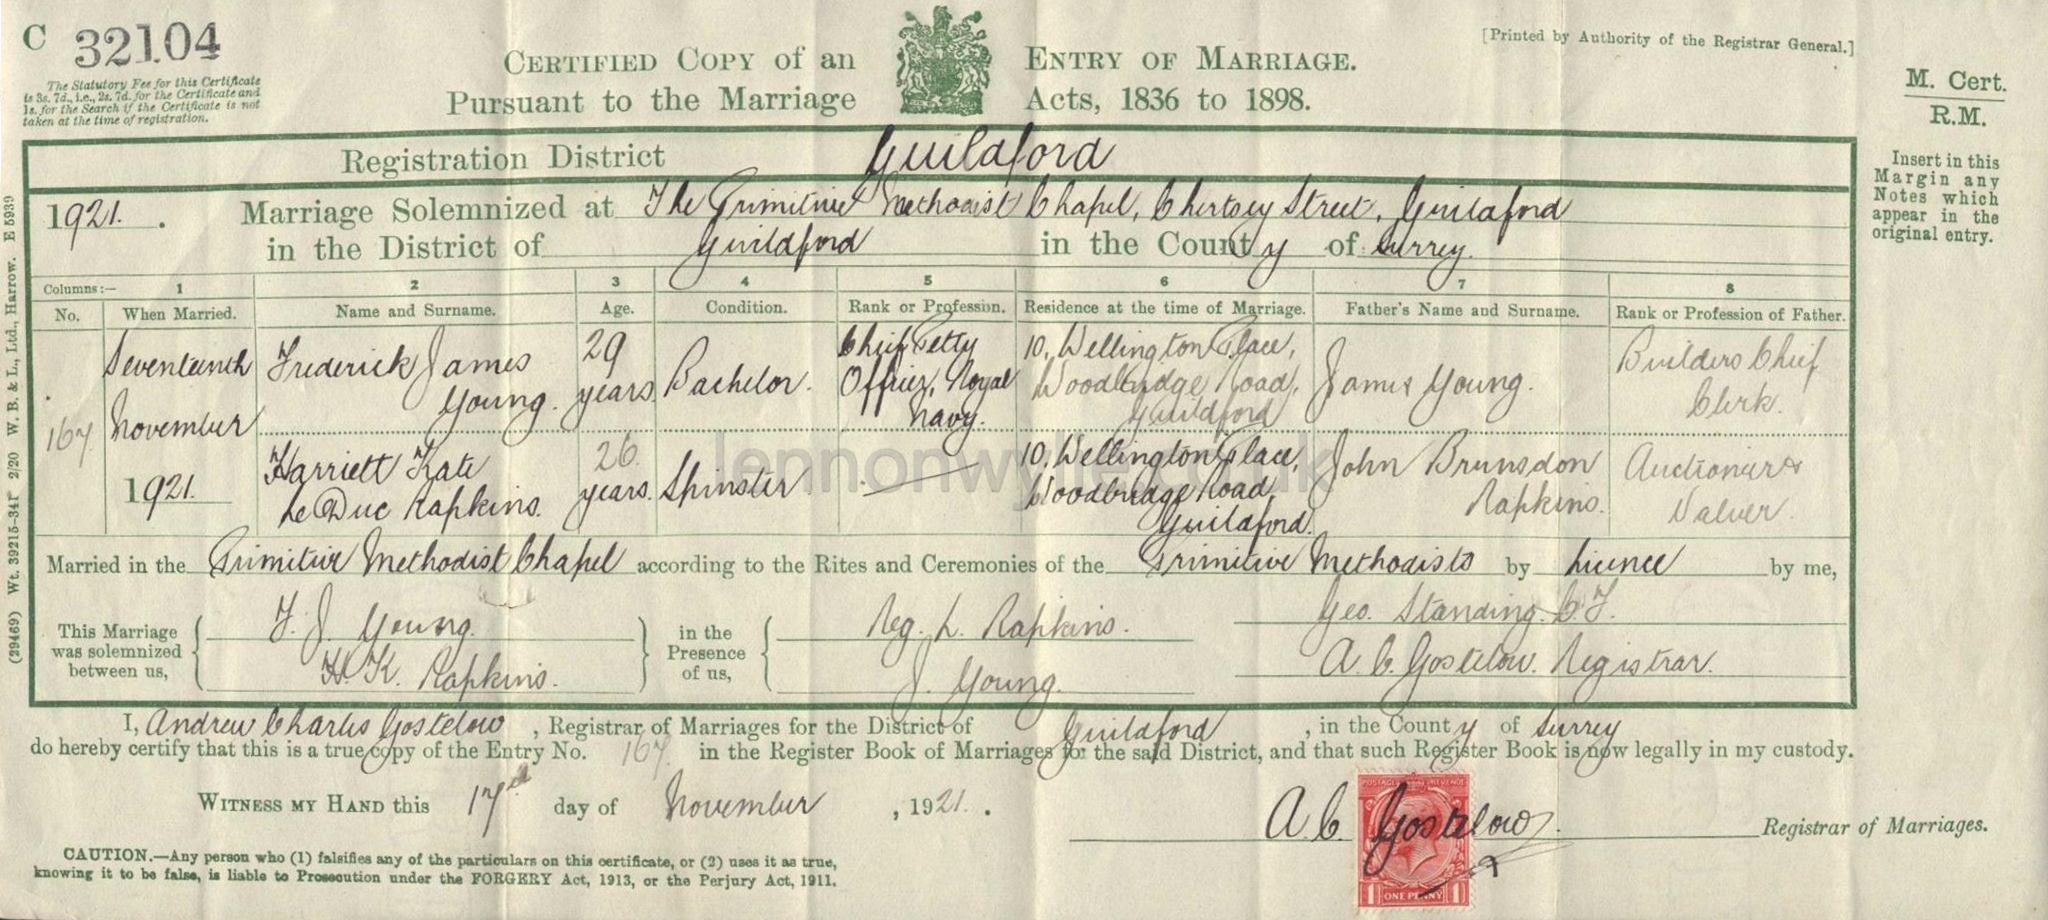 C 32104
The Statutory Fee for this Certificate
is 3s. 7d., i.e., 2s. 7d. for the Certificate and
1s. for the Search if the Certificate is not
taken at the time of registration.
CERTIFIED COPY of an ENTRY OF MARRIAGE.
Pursuant to the Marriage Acts, 1836 to 1898.
[Printed by Authority of the Registrar General.]
M. Cert.
R.M.
Insert in this
Margin any
Notes which
appear in the
original entry.
(29469) Wt. 39215-341 2/20 W. B. & L., Ltd., Harrow. E 5939
Registration District Guildford
1921. Marriage Solemnized at The Primitive Methodist Chapel, Chertsey Street, Guildford
in the District of Guildford in the County of Surrey.
Columns:— 1 2 3 4 5 6 7 8
No. When Married. Name and Surname. Age. Condition. Rank or Profession. Residence at the time of Marriage. Father's Name and Surname. Rank or Profession of Father.
167
Seventeenth
November
1921.
Frederick James
Young.
29
years
Bachelor.
Chief Petty
Officer, Royal
Navy.
10, Wellington Place,
Woodbridge Road,
Guildford
James Young.
Builders Chief
Clerk.
Harriett Kate
Le Duc Rapkins.
26
years.
Spinster
10, Wellington Place,
Woodbridge Road,
Guildford.
John Brunsdon
Rapkins.
Auctioneer &
Valuer.
lennonwylie.co.uk
Married in the Primitive Methodist Chapel according to the Rites and Ceremonies of the Primitive Methodists by Licence by me,
This Marriage
was solemnized
between us,
F. J. Young.
H. K. Rapkins.
in the
Presence
of us,
Reg. L. Rapkins.
J. Young.
Geo. Standing. C.F.
A. C. Gostelow. Registrar.
I, Andrew Charles Gostelow, Registrar of Marriages for the District of Guildford, in the County of Surrey
do hereby certify that this is a true copy of the Entry No. 167 in the Register Book of Marriages for the said District, and that such Register Book is now legally in my custody.
WITNESS MY HAND this 17th day of November, 1921.
A C Gostelow Registrar of Marriages.
POSTAGE REVENUE
1 ONE PENNY 1
CAUTION.—Any person who (1) falsifies any of the particulars on this certificate, or (2) uses it as true,
knowing it to be false, is liable to Prosecution under the FORGERY Act, 1913, or the Perjury Act, 1911.